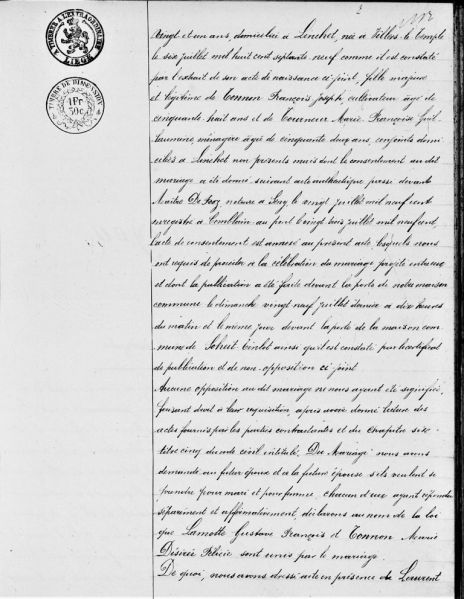 TIMBRE A L'EXTRAORDINAIRE
LIÈGE
TIMBRE DE DIMENSION
1 Fr
50c
2
vingt et un ans, domiciliée à Linchet, née à Villers-le-Temple
le six juillet mil huit cent septante neuf comme il est constaté
par l'extrait de son acte de naissance ci-joint, fille majeure
et légitime de Tonnon François Joseph, cultivateur âgé de
cinquante huit ans et de Tourneur Marie Françoise Guil
laumine, ménagère âgée de cinquante deux ans, conjoints domi
ciliés à Linchet non présents mais dont le consentement au dit
mariage a été donné suivant acte authentique passé devant
Maître notaire à le vingt juillet mil neuf cent
enregistré à Comblain au pont le vingt trois juillet mil neuf cent
l'acte de consentement est annexé au présent acte lesquels nous
ont requis de procéder à la célébration du mariage projeté entre eux
et dont la publication a été faite devant la porte de notre maison
commune le dimanche vingt neuf juillet dernier à dix heures
du matin et le même jour devant la porte de la maison com
mune de Soheit Tinlot ainsi qu'il est constaté par le certificat
de publication et de non opposition ci-joint
Aucune opposition au dit mariage ne nous ayant été signifiée,
faisant droit à leur réquisition, après avoir donné lecture des
actes fournis par les parties contractantes et du chapitre six
titre cinq du code civil intitulé, Du Mariage nous avons
demandé au futur époux et à la future épouse s'ils veulent se
prendre pour mari et pour femme, chacun d'eux ayant répondu
séparément et affirmativement, déclarons au nom de la loi
que Lamotte Gustave François et Tonnon Marie
Désirée Félicie sont unis par le mariage.
De quoi, nous avons dressé acte en présence de Laurent